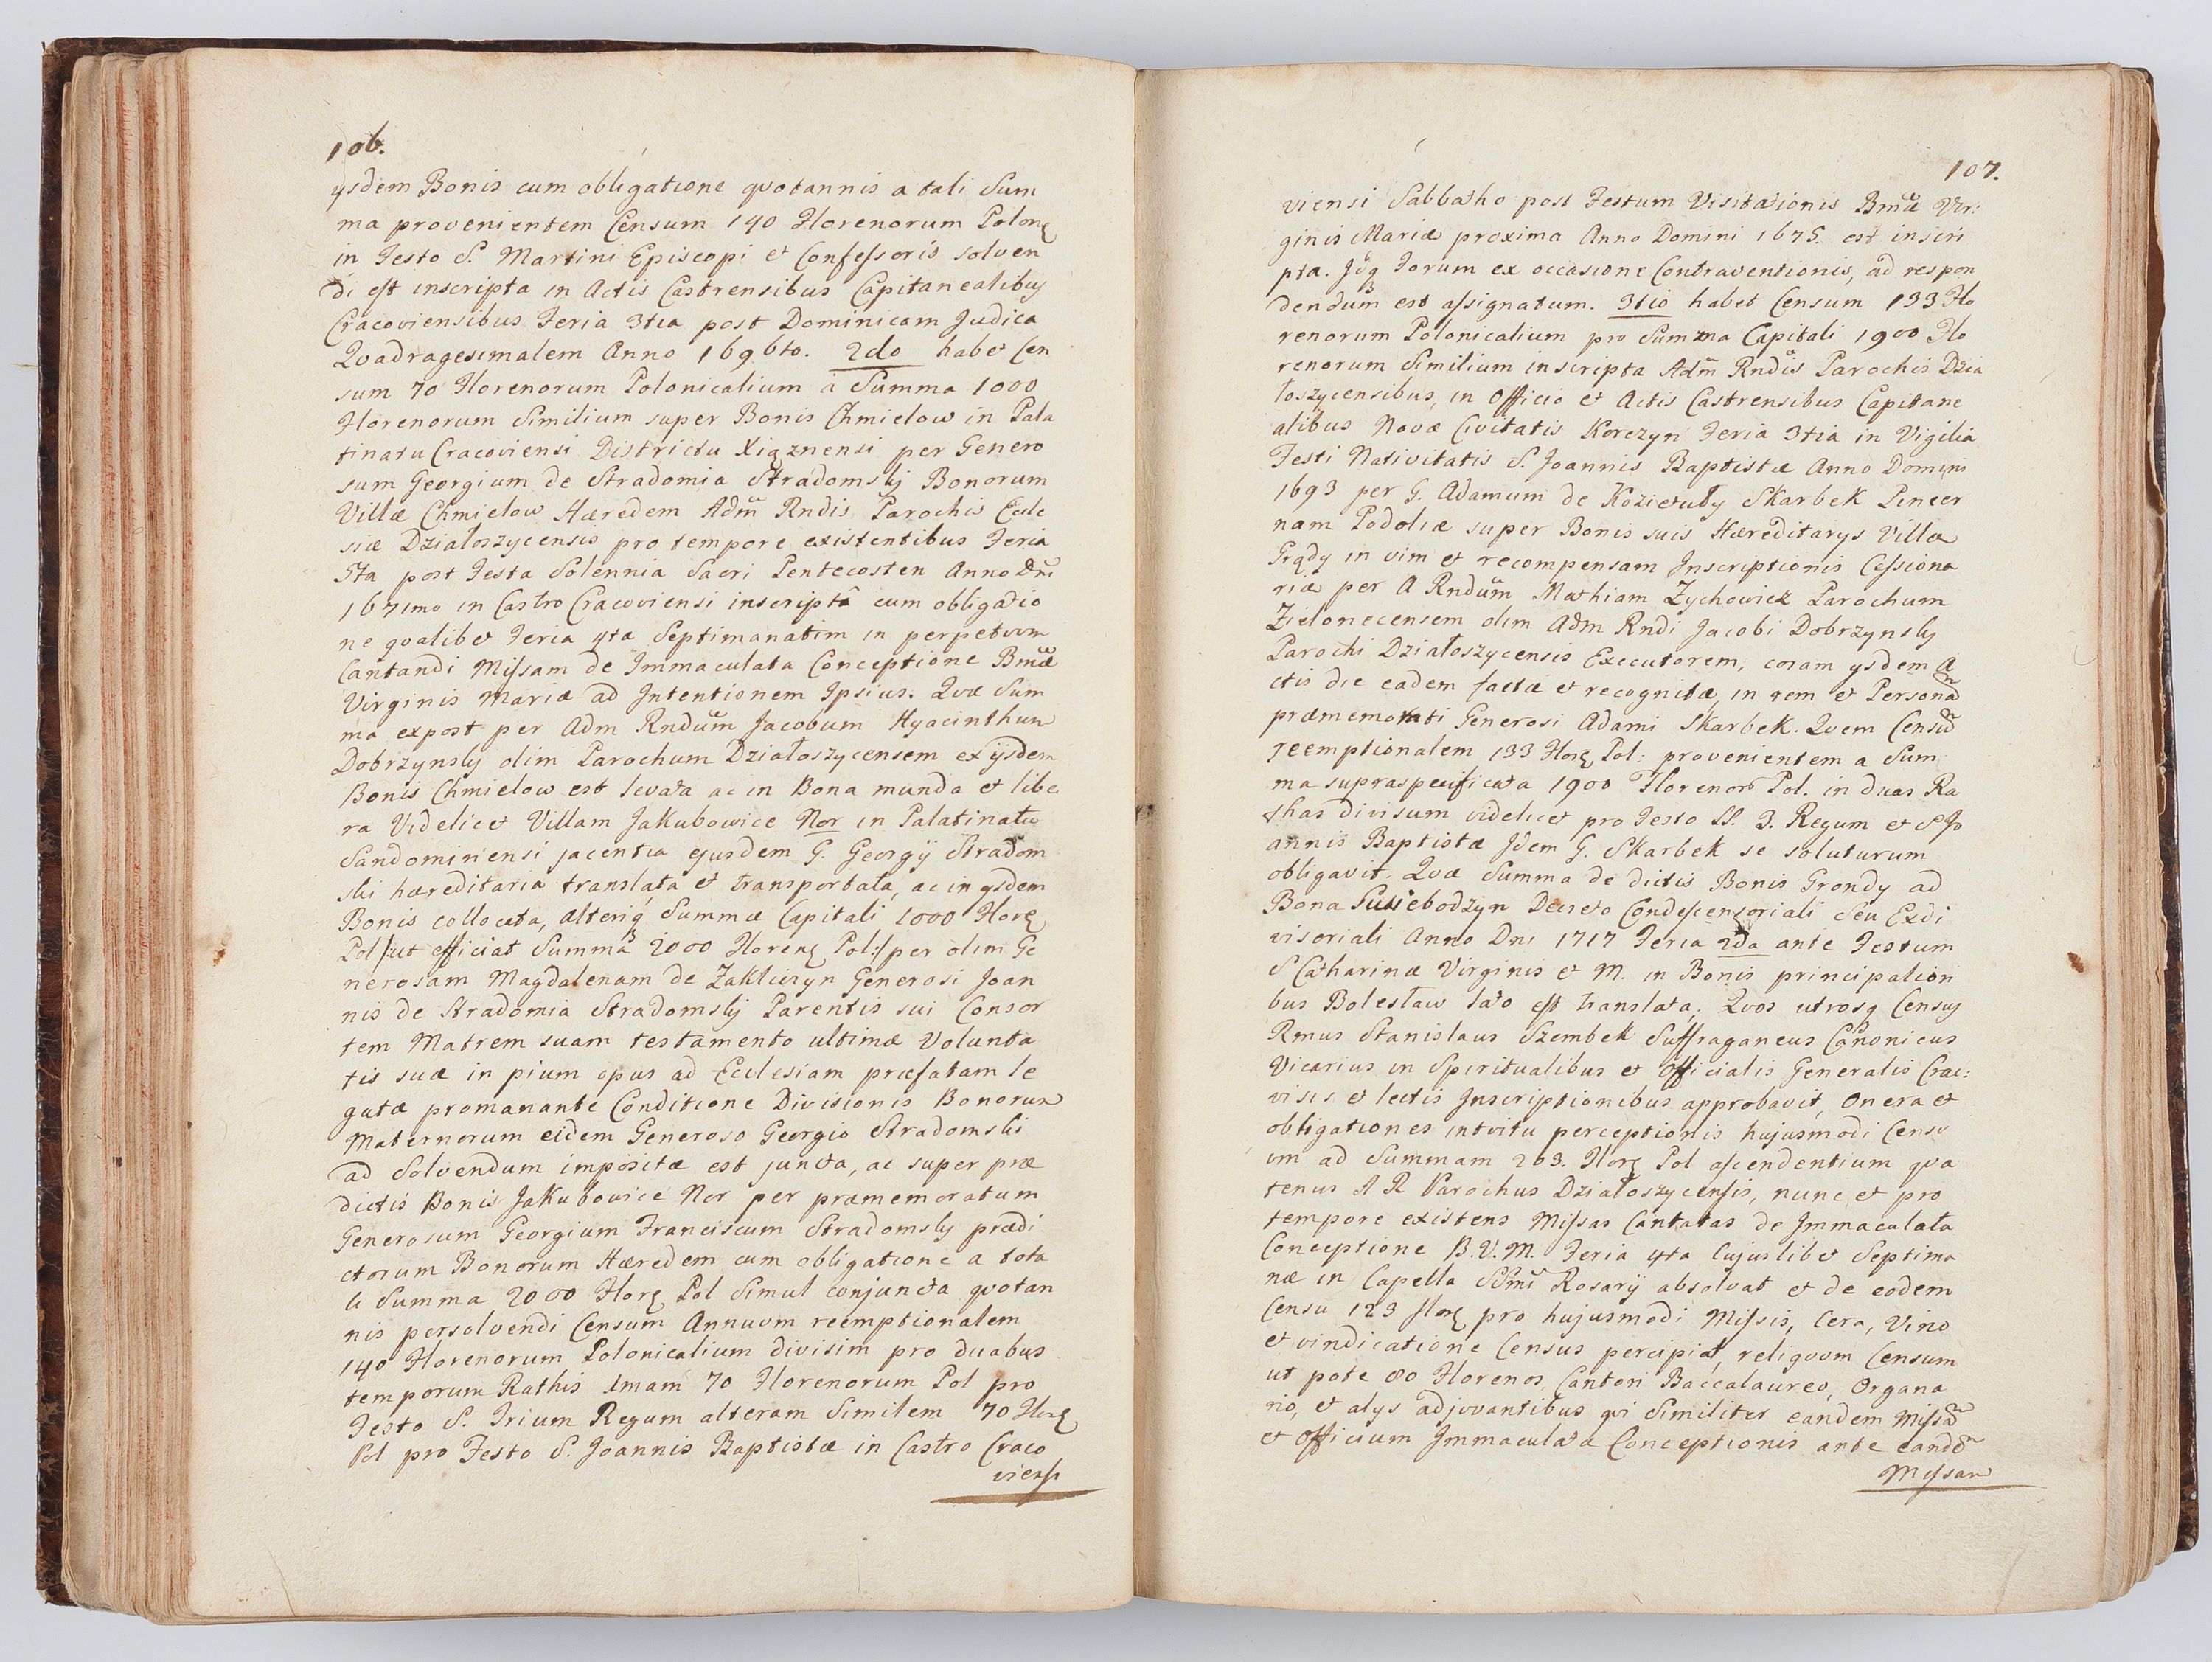 106.
ysdem Bonis cum obligatione qvotannis a tali Sum
ma provenientem Censum 140 Florenorum Polon
in Festo S. Martini Episcopi et Confessoris solven
di est inscripta in Actis Castrensibus Capitanealibus
Cracoviensibus Feria 3tia post Dominicam Judica
Qvadragesimalem Anno 1696to. 2do habet Cen
sum 70 Florenorum Polonicalium à Summa 1000
Florenorum Similium super Bonis Chmielow in Pala
tinatu Cracoviensi Districtu Xiąznensi per Genero
sum Georgium de Stradomia Stradomsky Bonorum
Villæ Chmielow Hæredem Adm Rndis Parochis Eccle
siæ Dzialoszycensis pro tempore existentibus Feria
5ta post Festa Solennia Sacri Pentecosten Anno Dni
1671mo in Castro Cracoviensi inscriptâ cum obligatio
ne qvalibet Feria 4ta Septimanatim in perpetvvm
Cantandi Missam de Immaculata Conceptione Bmæ
Virginis Mariæ ad Intentionem Ipsius. Qvæ Sum
ma expost per Adm Rndum Jacobum Hyacinthum
Dobrzynsky olim Parochum Działoszycensem ex ijsdem
Bonis Chmielow est levata ac in Bona munda et libe
ra Videlicet Villam Jakubowice Nor in Palatinatu
Sandomiriensi jacentia ejusdem G. Georgij Stradom
ski hæreditaria translata et transportata, ac in ysdem
Bonis collocata, alteriq Summæ Capitali 1000 Flor
Pol /:ut efficiat Summa 2000 Floren Pol:/ per olim Ge
nerosam Magdalenam de Zakliczyn Generosi Joan
nis de Stradomia Stradomsky Parentis sui Consor
tem Matrem suam testamento ultimæ Volunta
tis suæ in pium opus ad Ecclesiam præfatam le
gatæ promanante Conditione Divisionis Bonorum
Maternorum eidem Generoso Georgio Stradomski
ad Solvendum impositæ est juncta, ac super præ
dictis Bonis Jakubowice Nor per præmemoratum
Generosum Georgium Franciscum Stradomsky prædi
ctorum Bonorum Hæredem cum obligatione a tota
li Summa 2000 Flor Pol Simul conjuncta qvotan
nis persolvendi Censum Annvvm reemptionalem
140 Florenorum Polonicalium divisim pro duabus
temporum Rathis 1mam 70 Florenorum Pol pro
Festo S. Trium Regum alteram Similem 70 Flor
Pol pro Festo S. Joannis Baptistæ in Castro Craco
viensi
107.
viensi Sabbatho post Festum Visitationis Bmæ Vir:
ginis Mariæ proxima Anno Domini 1675. est inscri
pta. Idq Forum ex occasione Contraventionis, ad respon
dendum est assignatum. 3tio habet Censum 133 Flo
renorum Polonicalium pro Summa Capitali 1900 Flo
renorum Similium inscripta Adm Rndis Parochis Dzia
łoszycensibus, in Officio et Actis Castrensibus Capitane
alibus Novæ Civitatis Korczyn Feria 3tia in Vigilia
Festi Nativitatis S. Joannis Baptistæ Anno Domini
1693 per G. Adamum de Skarbek Pincer
nam Podoliæ super Bonis suis Hæreditarys Villæ
Grądy in vim et recompensam Inscriptionis Cessiona
riæ per A Rndum Mathiam Zychowicz Parochum
Zielonecensem olim Adm Rndi Jacobi Dobrzynsky
Parochi Działoszycensis Executorem, coram ysdem A
ctis die eadem factæ et recognitæ, in rem et Persona
præmemorati Generosi Adami Skarbek. Qvem Censu
reemptionalem 133 Flor Pol: provenientem a Sum
ma supraspecificata 1900 Florenor Pol. in duas Ra
thas divisum videlicet pro Festo SS. 3. Regum et S Jo
annis Baptistæ Idem G. Skarbek se soluturum
obligavit. Qvæ Summa de dictis Bonis Grondy ad
Bona Swiebodzyn Decreto Condescensoriali Seu Exdi
visoriali Anno Dni 1717 Feria 2da ante Festum
S Catharinæ Virginis et M. in Bonis principalion
bus Bolesław lato est translata; Qvos utrosq Census
Rmus Stanislaus Szembek Suffraganeus Canonicus
Vicarius in Spiritualibus et Officialis Generalis Crac:
visis et lectis Inscriptionibus approbavit, Onera et
obligationes intvitu perceptionis hujusmodi Censu
vm ad Summam 263. Flor Pol ascendentium qva
tenus A R Parochus Działoszycensis, nunc et pro
tempore existens Missas Cantatas de Immaculata
Conceptione B.V.M. Feria 4ta Cujuslibet Septima
næ in Capella SSmi Rosarij absolvat et de eodem
Censu 123 flor pro hujusmodi Missis, Cera, Vino
et vindicatione Census percipiat, reliqvvm Censum
ut pote 80 Florenos, Cantori Baccalaureo, Organa
rio, et alys adjvvantibus qvi Similiter eandem Missa
et Officium Immaculatæ Conceptionis ante eande
Missam